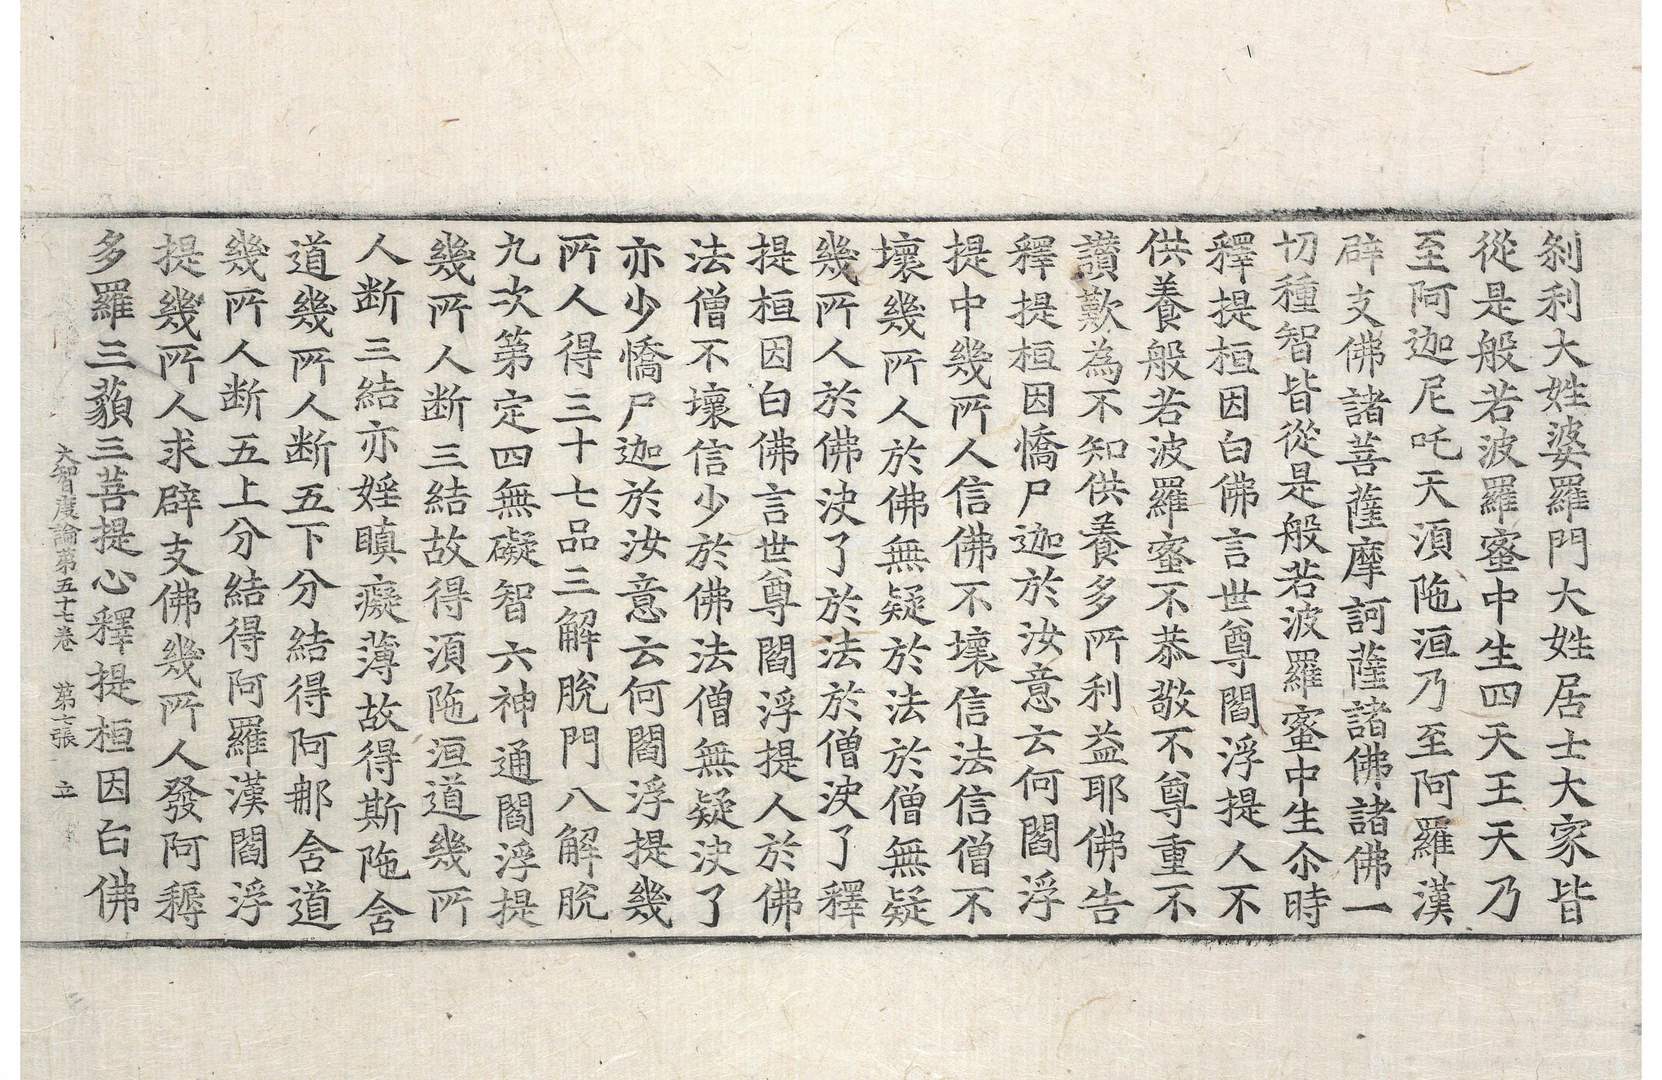 刹利大姓婆羅門大姓居士大家皆
從是般若波羅蜜中生四天王天乃
至阿迦尼吒天湏陁洹乃至阿羅漢
辟支佛諸菩薩摩訶薩諸佛諸佛一
切種智皆從是般若波羅蜜中生尒時
釋提桓因白佛言世尊閻浮提人不
供養般若波羅蜜不恭敬不尊重不
讃歎為不知供養多所利益耶佛告
釋提桓因憍尸迦於汝意云何閻浮
提中幾所人信佛不壞信法信僧不
壞幾所人於佛無疑於法於僧無疑
幾所人於佛决了於法於僧决了釋
提桓因白佛言世尊閻浮提人於佛
法僧不壞信少於佛法僧無疑决了
亦少憍尸迦於汝意云何閻浮提幾
所人得三十七品三解脫門八解脫
九次第定四無礙智六神通閻浮提
幾所人断三結故得湏陁洹道幾所
人断三結亦婬瞋癡薄故得斯陁含
道幾所人断五下分結得阿那含道
幾所人断五上分結得阿羅漢閻浮
提幾所人求辟支佛幾所人發阿耨
多羅三藐三菩提心釋提桓因白佛
大智度論第五十七卷 第七張 立